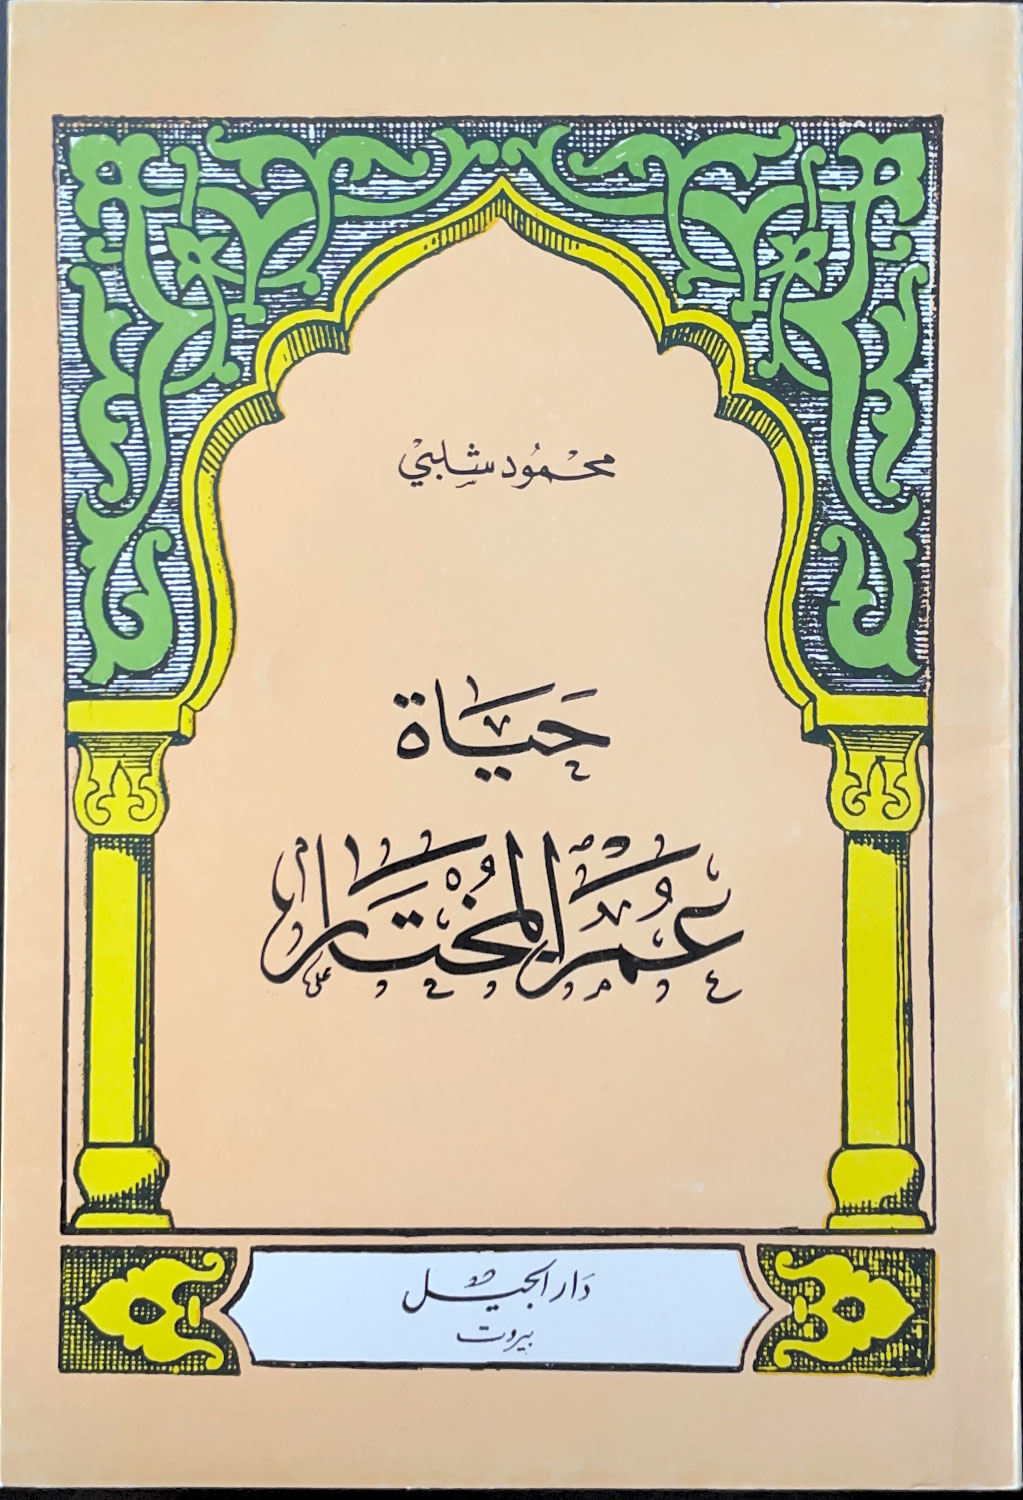 محمود شلبي
حياة
عمر المختار
دار الجيل
بيروت